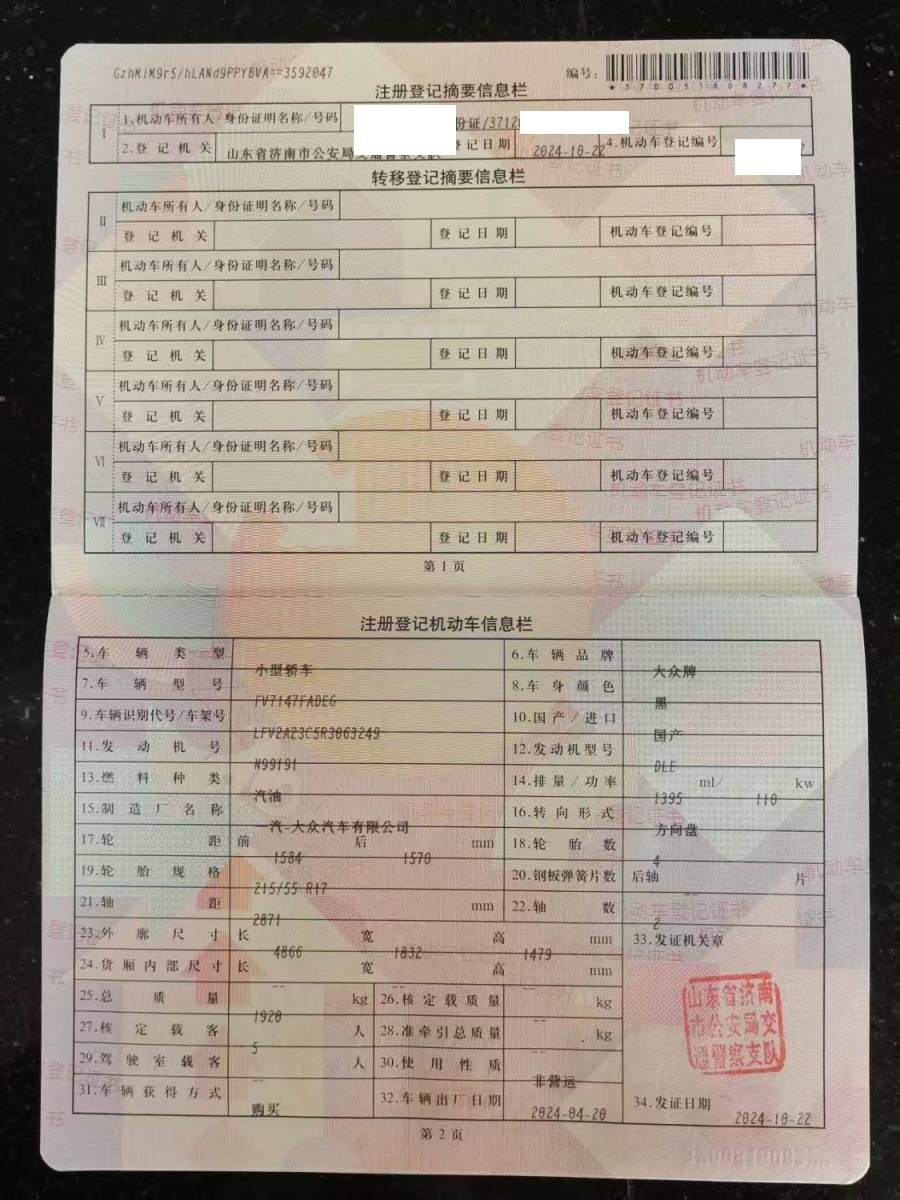 GzhMlM9rS/hLANd9PPYBVA==3592047
编号:
*370051608277*
注册登记摘要信息栏
I 1.机动车所有人/身份证明名称/号码 份证/3712
2.登记机关 山东省济南市公安局交通警察支队 登记日期 2024-10-22 4.机动车登记编号
转移登记摘要信息栏
II 机动车所有人/身份证明名称/号码
登记机关 登记日期 机动车登记编号
III 机动车所有人/身份证明名称/号码
登记机关 登记日期 机动车登记编号
IV 机动车所有人/身份证明名称/号码
登记机关 登记日期 机动车登记编号
V 机动车所有人/身份证明名称/号码
登记机关 登记日期 机动车登记编号
VI 机动车所有人/身份证明名称/号码
登记机关 登记日期 机动车登记编号
VII 机动车所有人/身份证明名称/号码
登记机关 登记日期 机动车登记编号
第1页
注册登记机动车信息栏
5.车辆类型 小型轿车 6.车辆品牌 大众牌
7.车辆型号 FV7147FADEG 8.车身颜色 黑
9.车辆识别代号/车架号 LFV2A23C5R3063249 10.国产/进口 国产
11.发动机号 N99191 12.发动机型号 DLE
13.燃料种类 汽油 14.排量/功率 1395 ml/ 110 kw
15.制造厂名称 一汽-大众汽车有限公司 16.转向形式 方向盘
17.轮距 前 1584 后 1570 mm 18.轮胎数 4
19.轮胎规格 215/55 R17 20.钢板弹簧片数 后轴 -- 片
21.轴距 2871 mm 22.轴数 2
23.外廓尺寸 长 4866 宽 1832 高 1479 mm 33.发证机关章
24.货厢内部尺寸 长 -- 宽 -- 高 -- mm
25.总质量 1920 kg 26.核定载质量 -- kg
27.核定载客 5 人 28.准牵引总质量 -- kg
29.驾驶室载客 -- 人 30.使用性质 非营运
31.车辆获得方式 购买 32.车辆出厂日期 2024-04-20 34.发证日期 2024-10-22
山东省济南
市公安局交
通警察支队
第2页